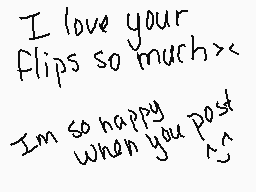 I love your
flips so much><
Im so happy
when you post ^^